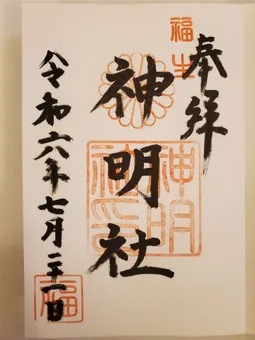 奉拝
福生
神明社
神明社印
令和六年七月二十一日
福